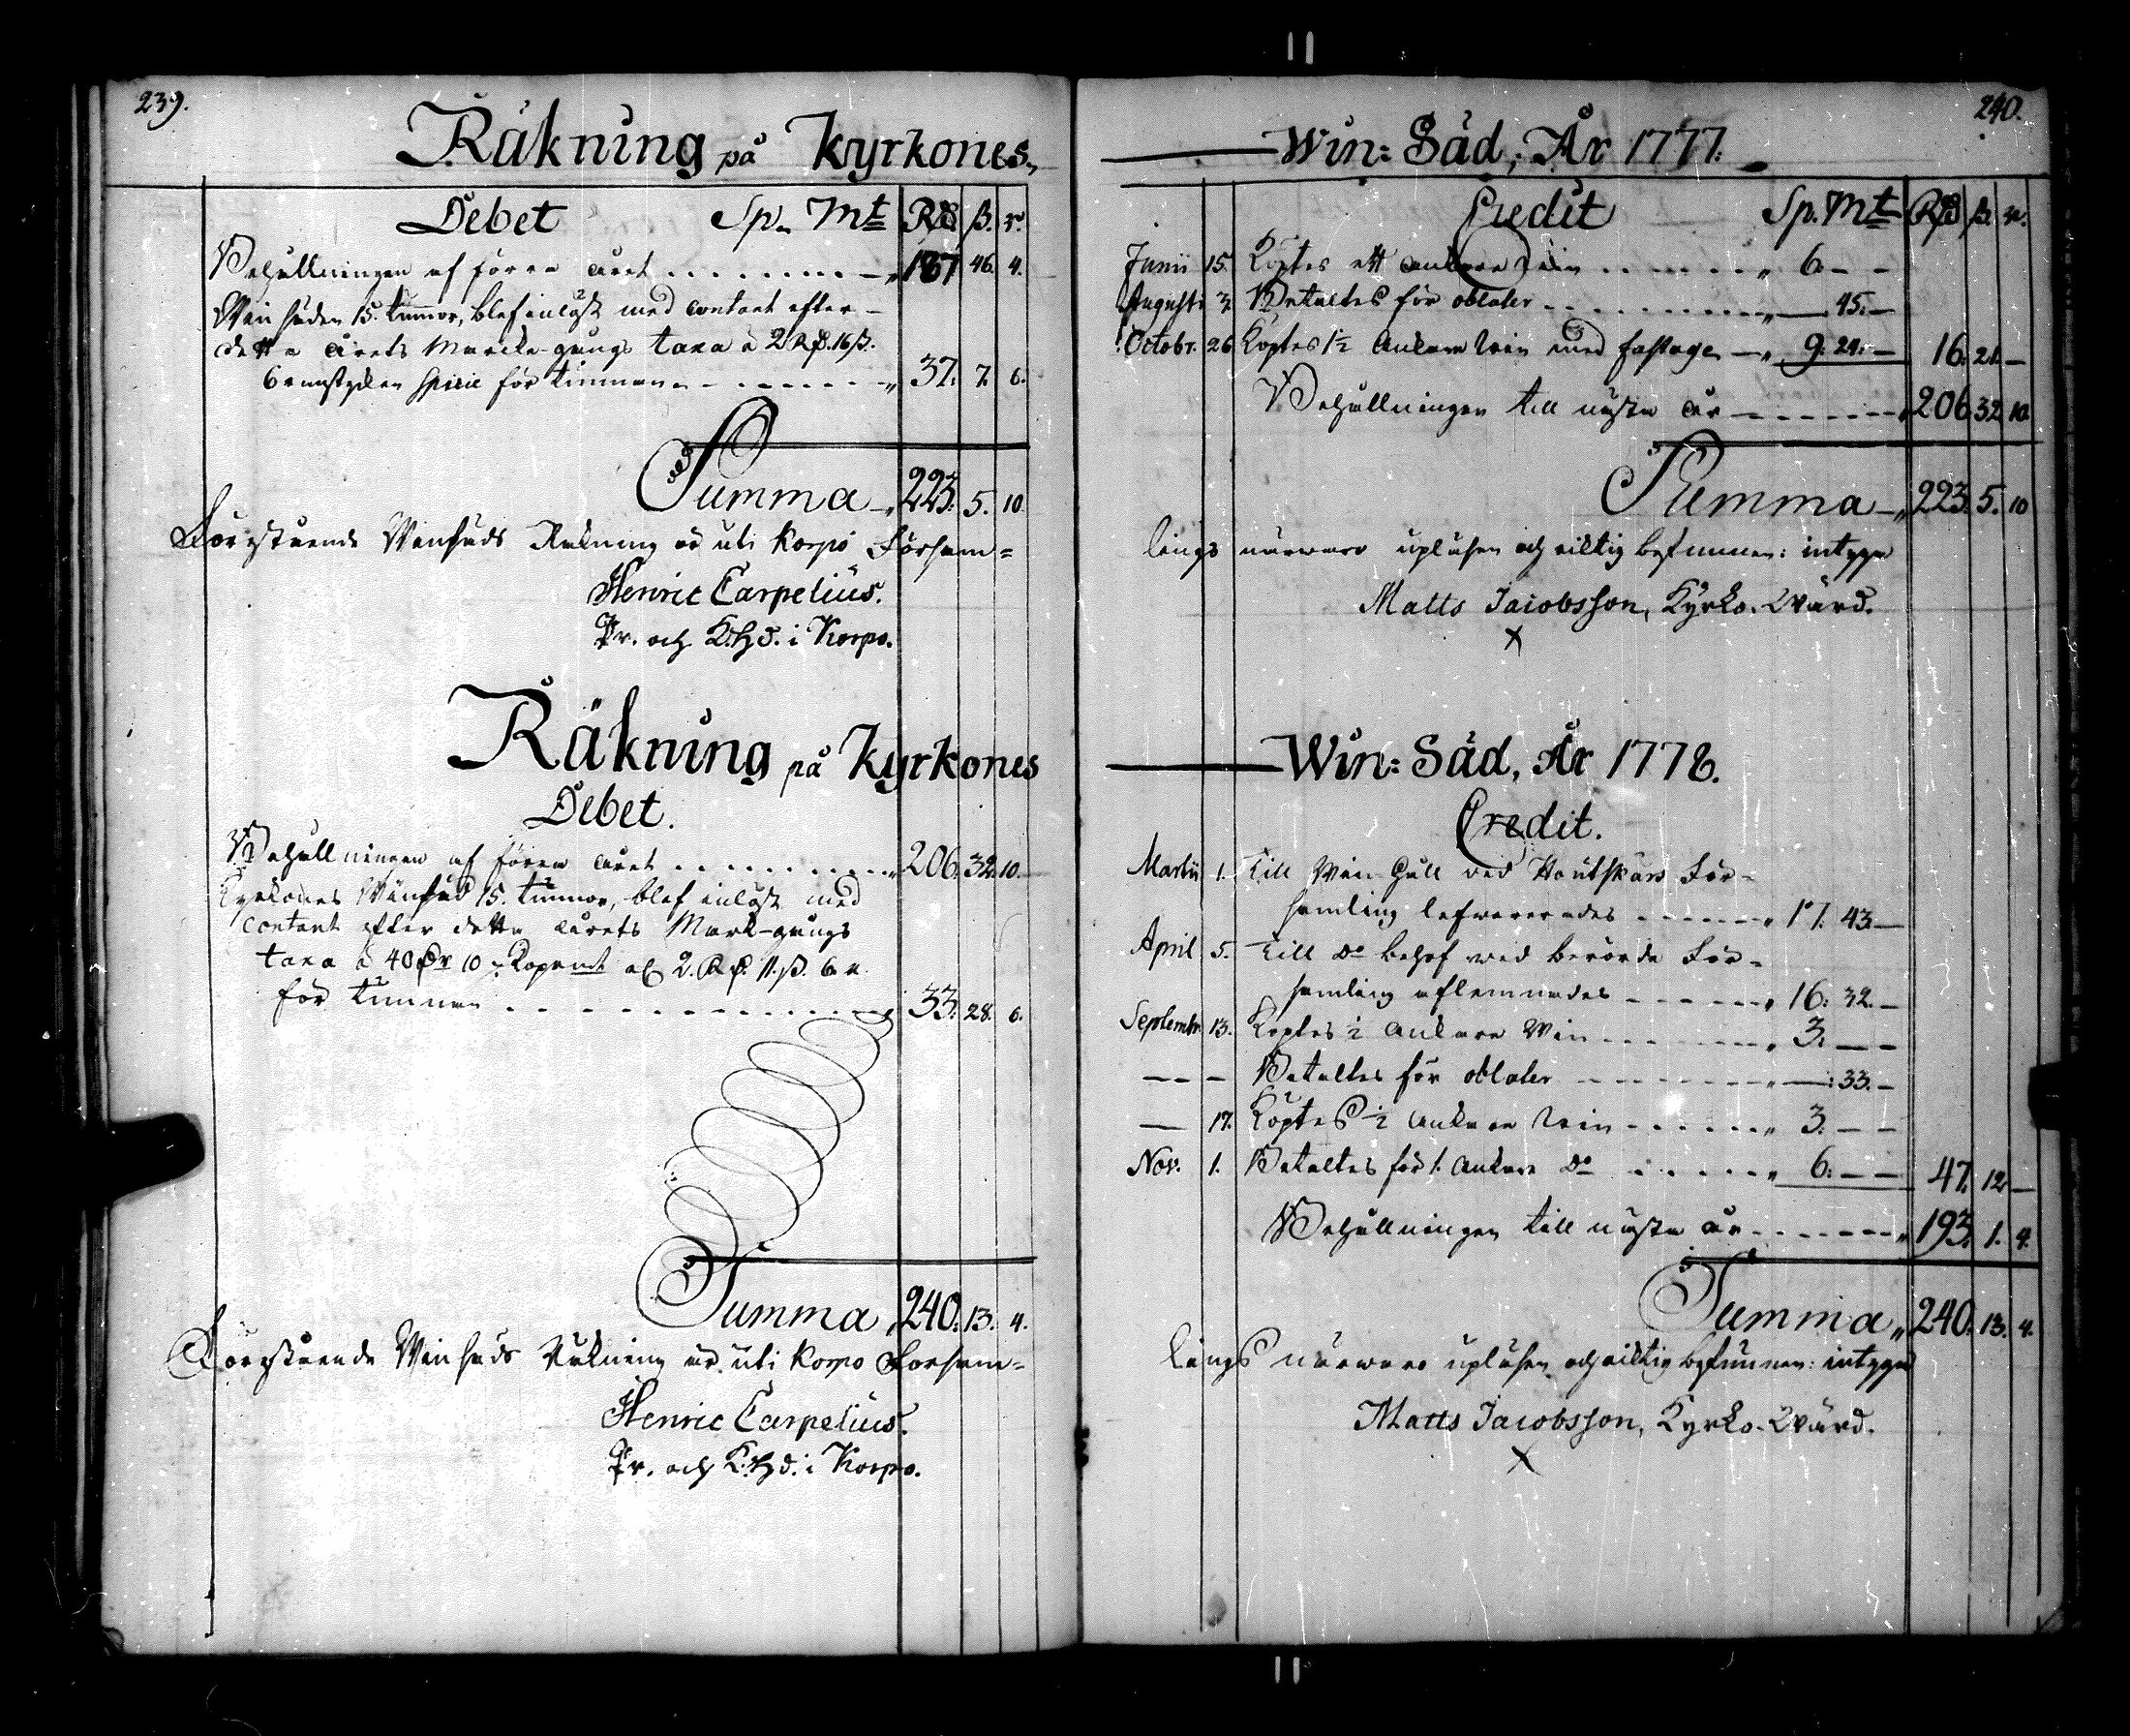 239.
Räkning på Kyrkones
Debet Sp. Mt R:d ß. r.
Behållningen af förra året - - - " 187 46. 4.
Winsäden 15. tunnor, blef inlöst med contant efter
detta årets Marcke-gångs taxa à 2 Rd. 16 ß.
6 runstyken specie för tunnan - - - " 37. 7. 6.
Summa " 223. 5. 10
Förestående Winsäds Räkning är uti Korpo Försam=
Henric Carpelius.
Pr. och K.H.d. i Korpo.
Räkning på Kyrkones
Debet.
Behållningen af förra året - - - " 206. 32. 10.
Kyrkones Winsäd 15. tunnor, blef inlöst med
contant efter detta årets Mark-gångs
taxa à 40 Dr 10 Kopmt el 2. Rd. 11. ß. 6 r.
för tunnan - - - " 33. 28. 6.
Summa " 240. 13. 4.
Förestående Winsäds Räkning är uti Korpo Försam=
Henric Carpelius.
Pr. och K.H.d. i Korpo.
240.
Win: Säd, År 1777.
Credit Sp. Mt R:d ß. r.
Junii 15. Köptes ett ankare win - - - " 6. — —
Augusti 3. Betaltes för oblater - - - " — 45. —
Octobr. 26 Köptes 1½ Ankare win med fastage — " 9: 24. — 16. 21. —
Behållningen till nästa år - - - " 206. 32. 10.
Summa — " 223. 5. 10
lings närwaro upläsen och riktig befunnen: intyga
Matts Jacobsson, Kyrko-Wärd.
X
Win: Säd, År 1778.
Credit.
Martii 1. Till Win Gäll wed Houtskärs För-
samling lefwererades - - - " 17. 43. —
April 5. Till Do behof wed berörde För-
samling aflemnades - - - " 16: 32. —
Septembr. 13. Köptes ½ Ankare Win - - - " 3. — —
— — — Betaltes för oblater - - - " —: 33. —
— 17. Köptes ½ Ankare win - - - " 3. — —
Nov. 1. Betaltes för 1. Ankare Do - - - " 6. — — 47. 12 —
Behållningen till nästa år - - - " 193. 1. 4.
Summa " 240. 13. 4.
lings närwaro upläsen och riktig befunnen: intyga
Matts Jacobsson, Kyrko-Wärd.
X